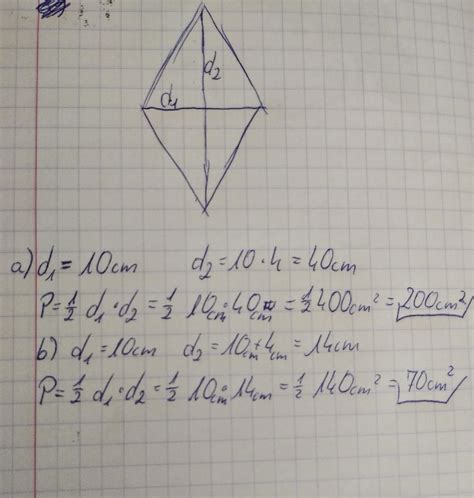 d₂
d₁
a) d₁ = 10cm d₂ = 10 · 4 = 40cm
P = ½ d₁ · d₂ = ½ 10cm · 40cm = ½ 400cm² = 200cm²
b) d₁ = 10cm d₂ = 10cm + 4cm = 14cm
P = ½ d₁ · d₂ = ½ 10cm · 14cm = ½ 140cm² = 70cm²